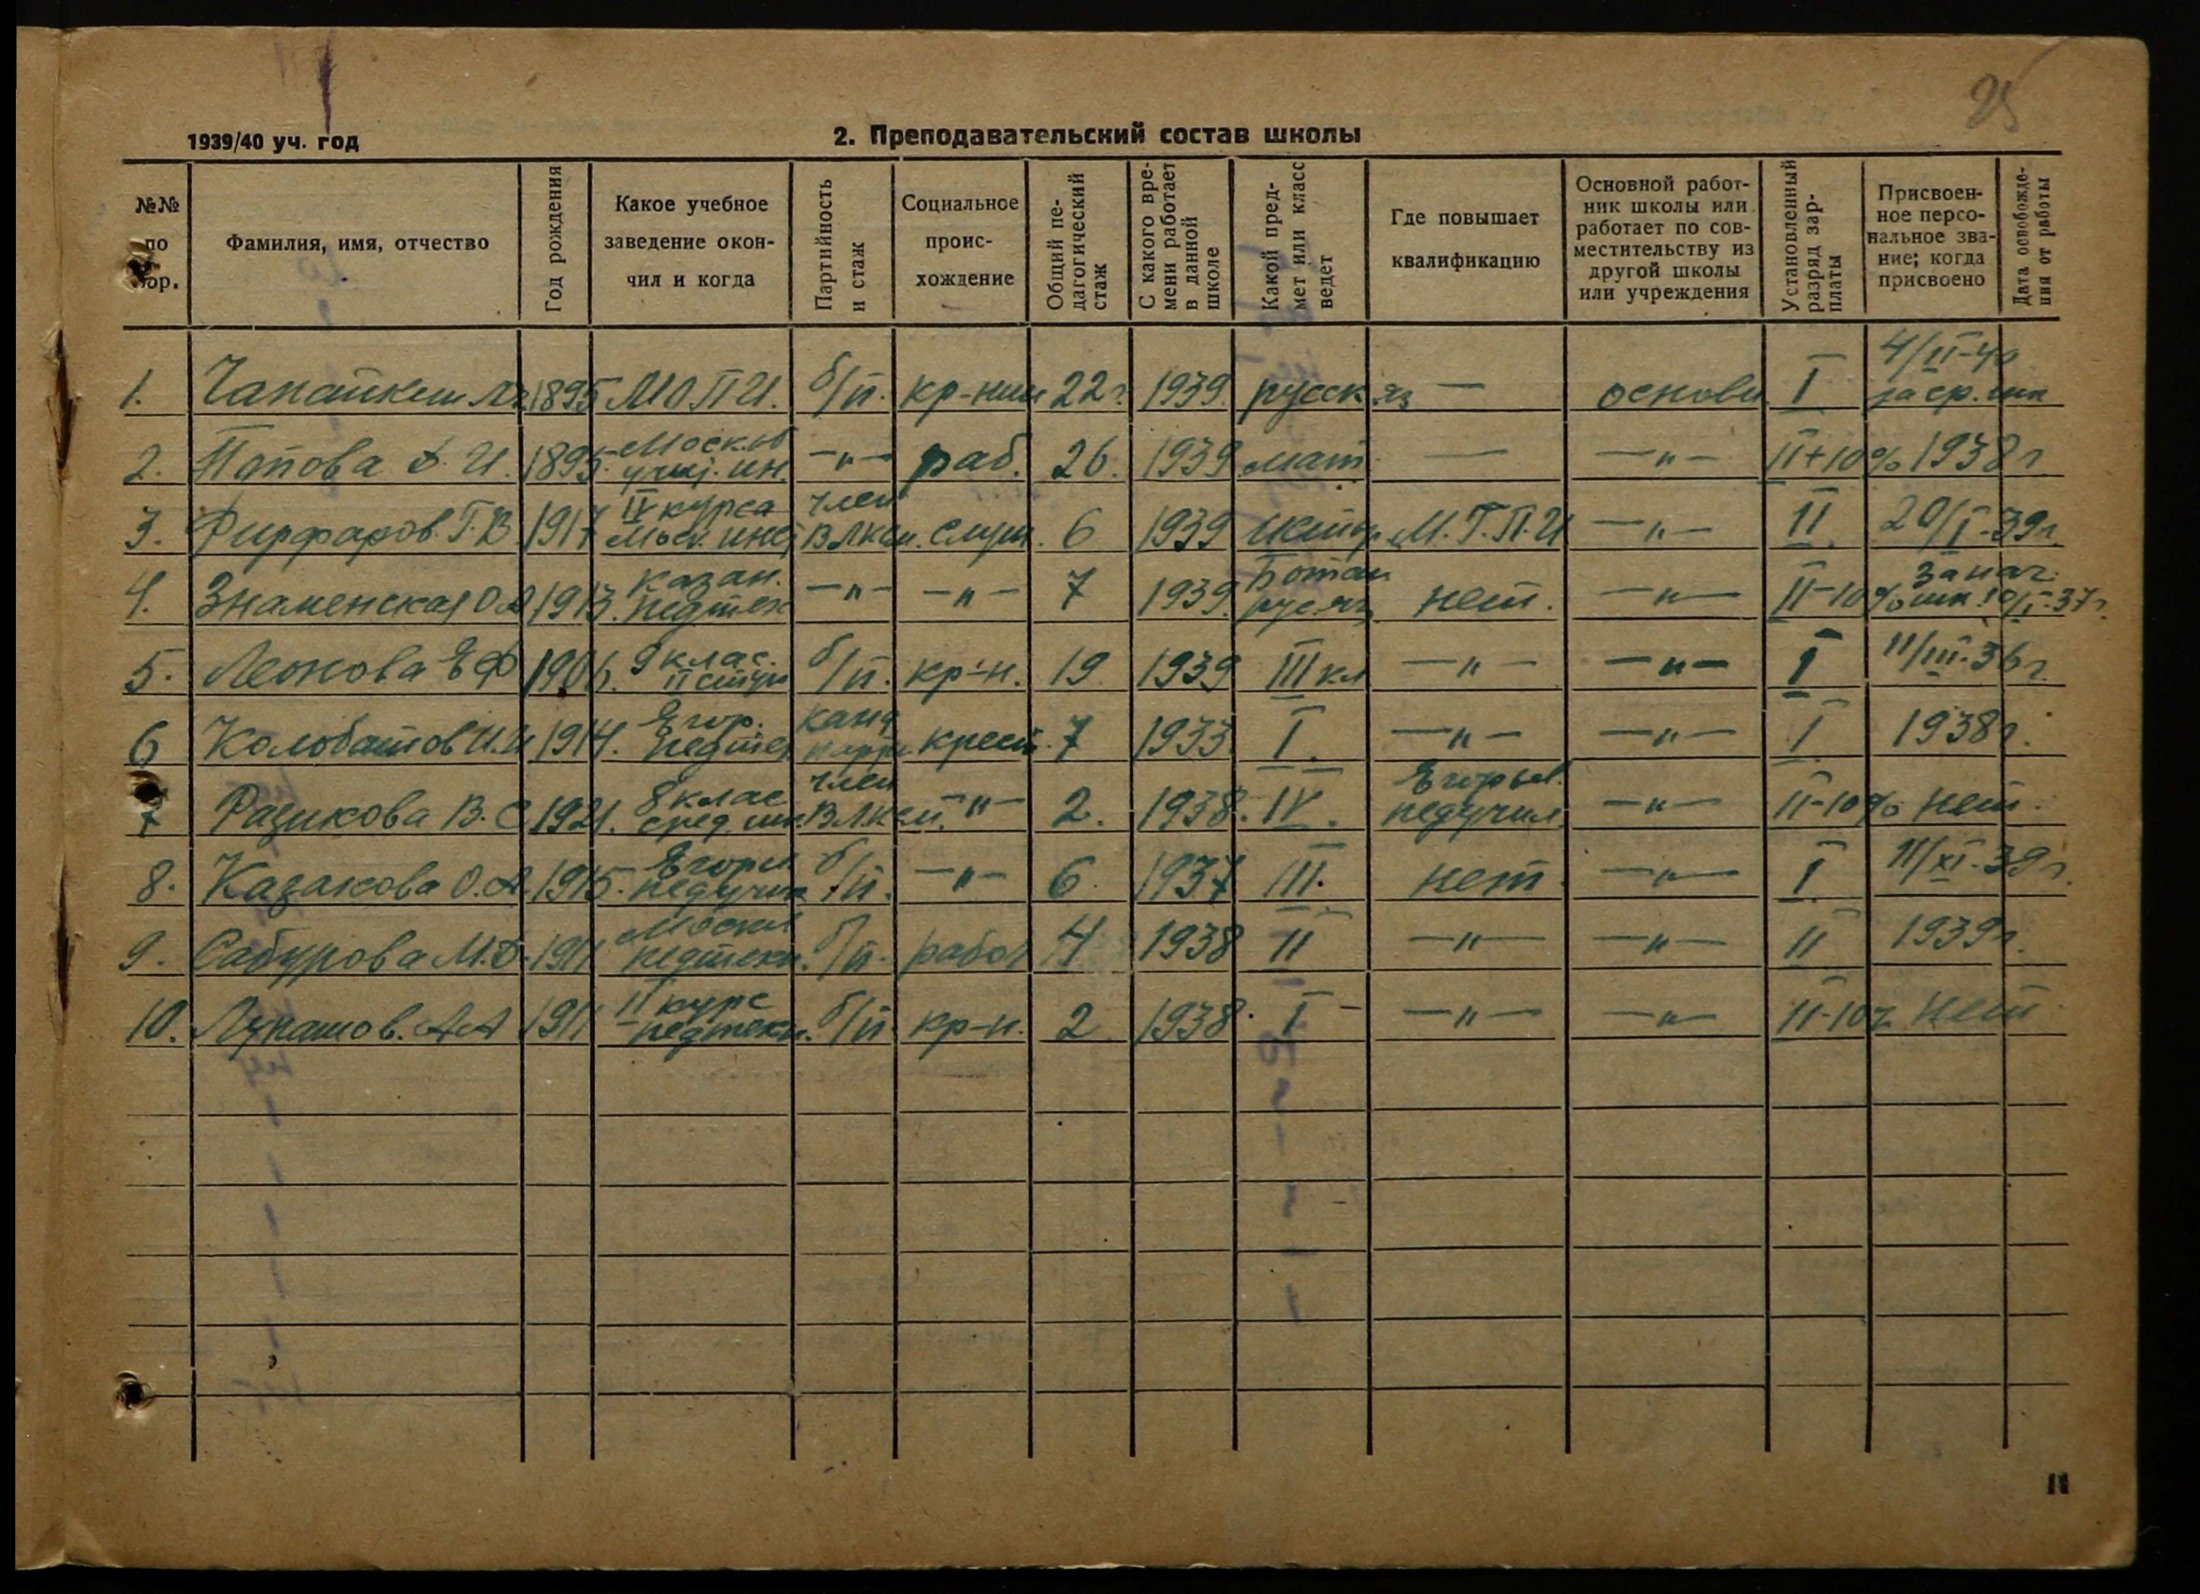 25
1939/40 уч. год
2. Преподавательский состав школы
№№ по пор.
Фамилия, имя, отчество
Год рождения
Какое учебное заведение окончил и когда
Партийность и стаж
Социальное происхождение
Общий педагогический стаж
С какого времени работает в данной школе
Какой предмет или класс ведет
Где повышает квалификацию
Основной работник школы или работает по совместительству из другой школы или учреждения
Установленный разряд зарплаты
Присвоенное персональное звание; когда присвоено
Дата освобождения от работы
1. 1895 М О П И. б/п. кр-нин 22 г. 1939. русск яз — основн I 4/II-40 за ср. шк
2. Попова А. И. 1895. Москов учит. ин. —"— раб. 26. 1939 мат. — —"— II+10% 1938 г
3. Г. В 1917 IV курса Моск. инст член ВЛКСМ. служ. 6 1939 истор М. Г. П. И —"— II 20/I-39г.
4. Знаменская О А 1913. Казан. педтех —"— —"— 7 1939. Ботан рус. яз нет. —"— II-10% За нач. шк. 10/I-37 г.
5. Леонова Е Ф 1906. 9 клас. II ступ б/п. кр-н. 19 1939 III кл —"— —"— I 11/III-36 г.
6 Колобашов И. И 1914. Егор. педтех канд парт. крест. 7 1933 I. —"— —"— I 1938г.
7 Разикова В. С 1921. 8 клас сред. шк. член ВЛКСМ. —"— 2. 1938. IV. Егорьев. педучил. —"— II-10% нет.
8. Казакова О. А. 1915. Егорьев педучил б/п. —"— 6. 1937 III. нет. —"— I 11/XI-39 г.
9. Сабурова М. Д. 1911 Москов педтехн. б/п. рабоч 4 1938 II —"— —"— II 1939г.
10. Лупашов. А А 1911 II курс педтехн. б/п кр-н. 2 1938. I —"— —"— II-10% нет
11